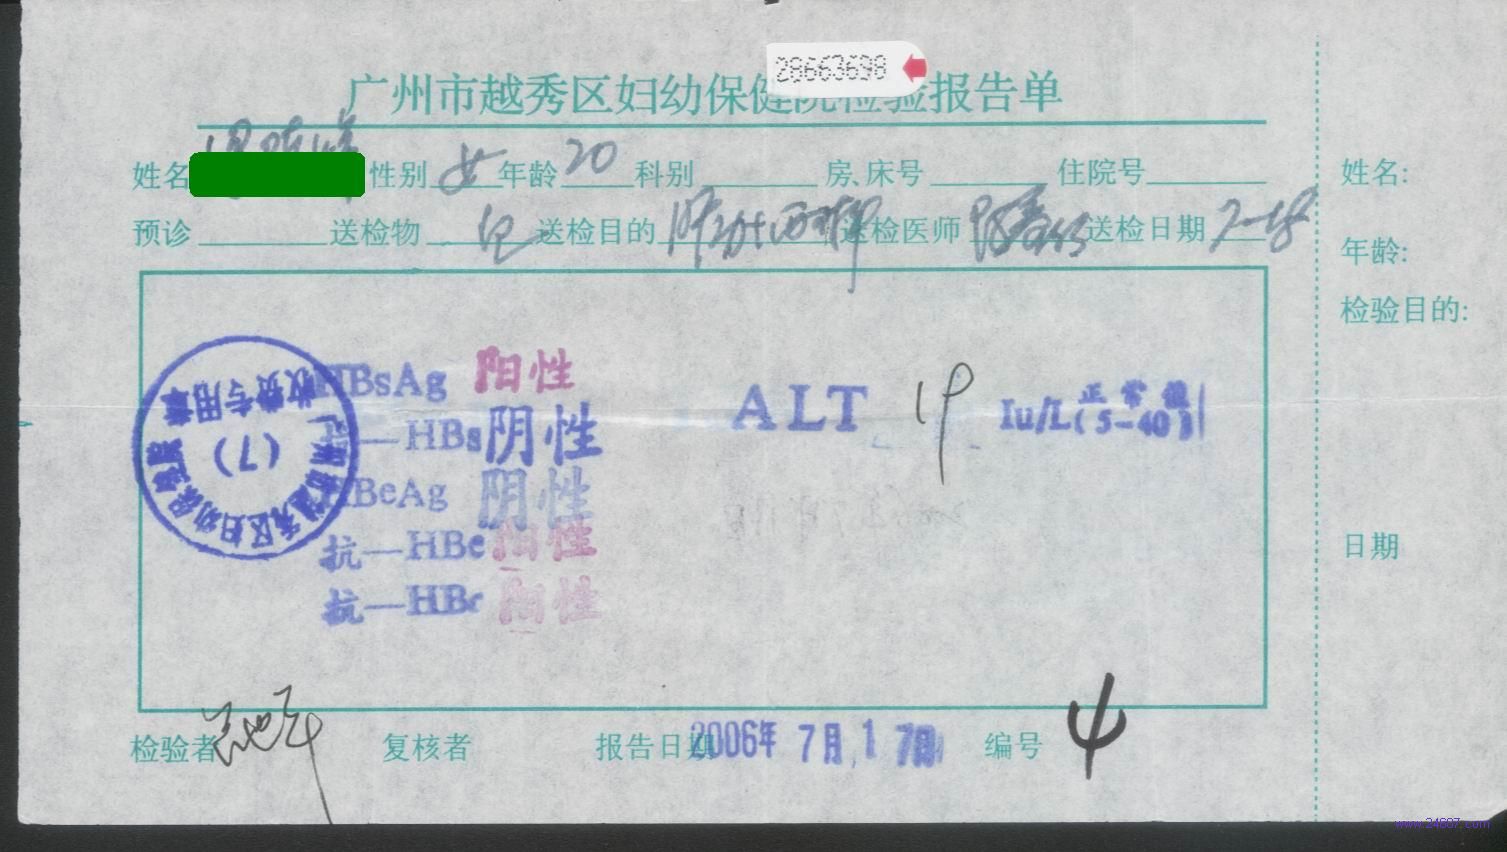 28663698
广州市越秀区妇幼保健院检验报告单
姓名 性别 女 年龄 20 科别 房、床号 住院号
预诊 送检物 送检目的 送检医师 送检日期
HBsAg 阳性
抗—HBs 阴性
HBeAg 阴性
抗—HBe 阳性
抗—HBc 阳性
ALT 19 Iu/L 正常值 (5-40)
收费专用章
(7)
检验者 复核者 报告日期 2006年 7月 17日 编号 4
姓名:
年龄:
检验目的:
日期
www.24807.com